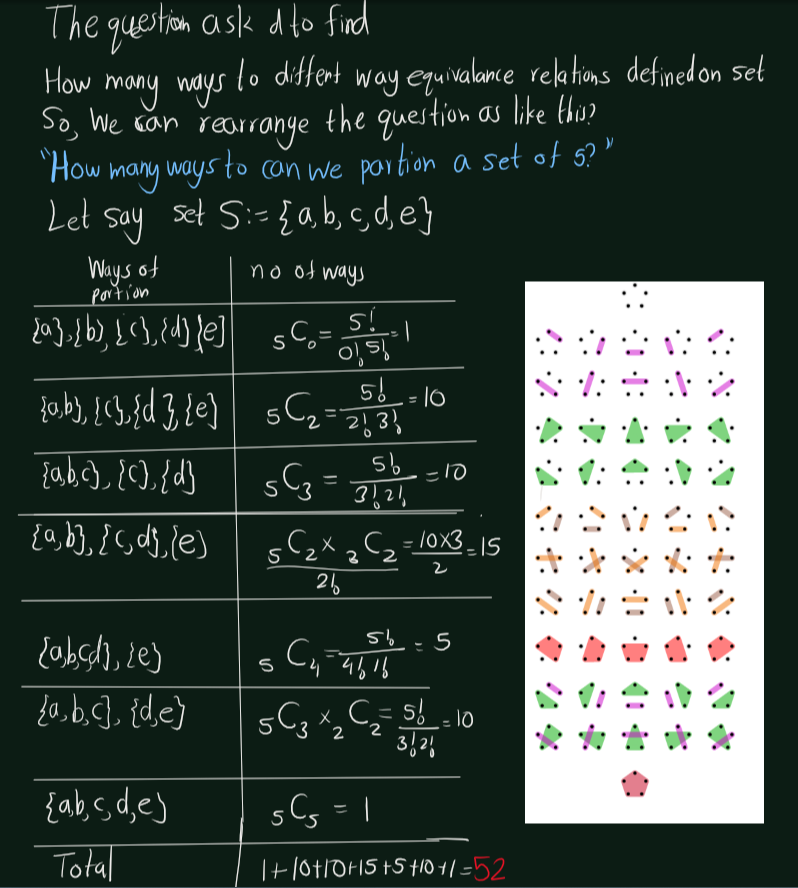 The question ask d to find
How many ways to diffent way equivalance relations defined on set
So, We can rearrange the question as like this?
"How many ways to can we partion a set of 5?"
Let say set S:= {a, b, c, d, e}
Ways of portion no of ways
{a},{b},{c},{d}{e} 5C0 = 5!/0!5! = 1
{a,b},{c},{d},{e} 5C2 = 5!/2!3! = 10
{a,b,c},{c},{d} 5C3 = 5!/3!2! = 10
{a,b},{c,d},{e} 5C2 × 3C2/2! = 10×3/2 = 15
{a,b,c,d},{e} 5C4 = 5!/4!1! = 5
{a,b,c},{d,e} 5C3 × 2C2 = 5!/3!2! = 10
{a,b,c,d,e} 5C5 = 1
Total 1+10+10+15+5+10+1=52